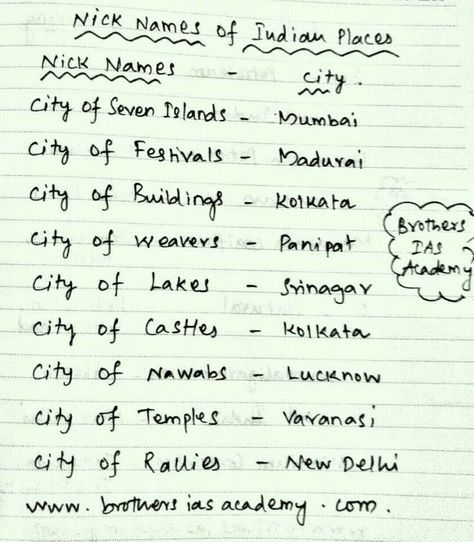 Nick Names of Indian Places
Nick Names - City.
City of Seven Islands - Mumbai
City of Festivals - Madurai
City of Buildings - Kolkata
City of Weavers - Panipat
Brothers
IAS
Academy
City of Lakes - Srinagar
City of Castles - Kolkata
City of Nawabs - Lucknow
City of Temples - Varanasi
City of Rallies - New Delhi
www.brothersiasacademy.com.